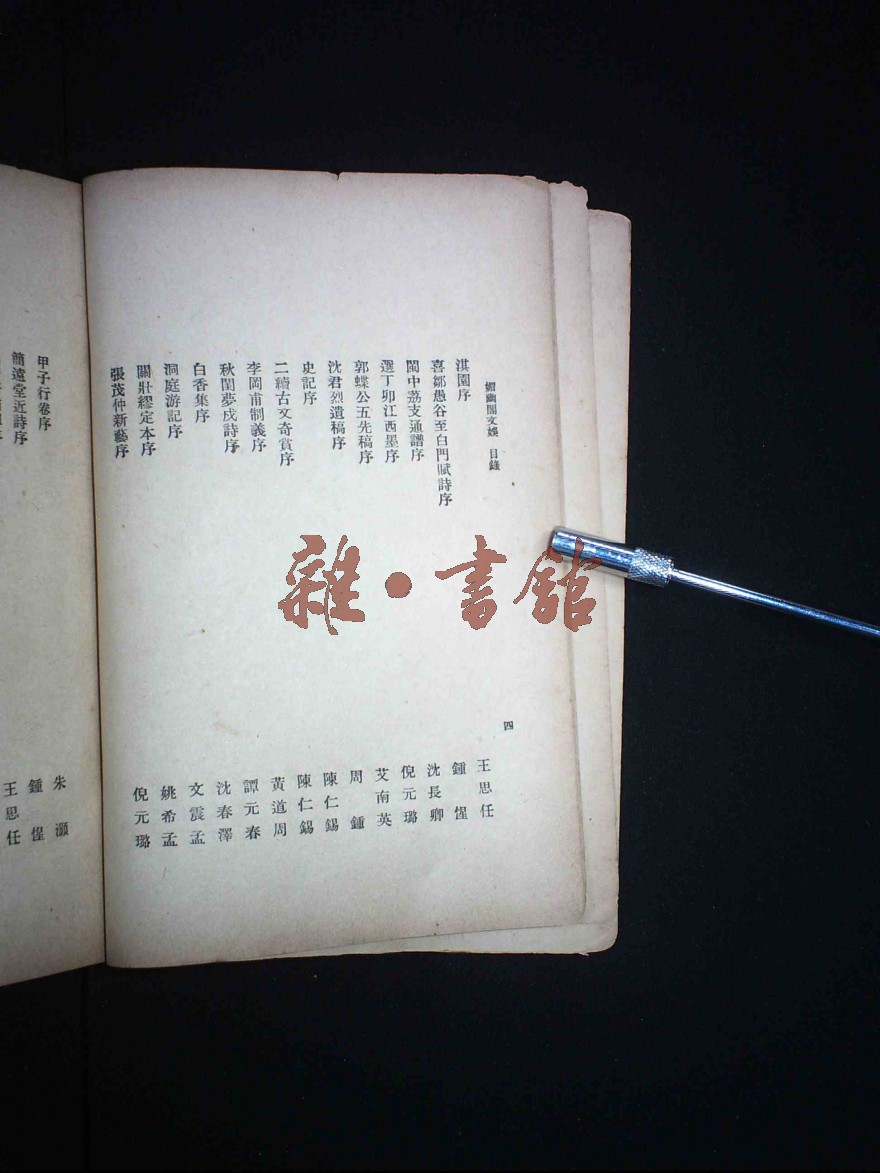 媚幽閣文娛 目錄 四
淇園序 王思任
喜鄒愚谷至白門賦詩序 鍾惺
閩中荔支通譜序 沈長卿
選丁卯江西墨序 倪元璐
郭蝶公五先稿序 艾南英
沈君烈遺稿序 周鍾
史記序 陳仁錫
二續古文奇賞序 陳仁錫
李岡甫制義序 黃道周
秋閨夢戍詩序 譚元春
白香集序 沈春澤
洞庭游記序 文震孟
關壯繆定本序 姚希孟
張茂仲新藝序 倪元璐
甲子行卷序 朱灝
簡遠堂近詩序 鍾惺
王思任
雜·書館